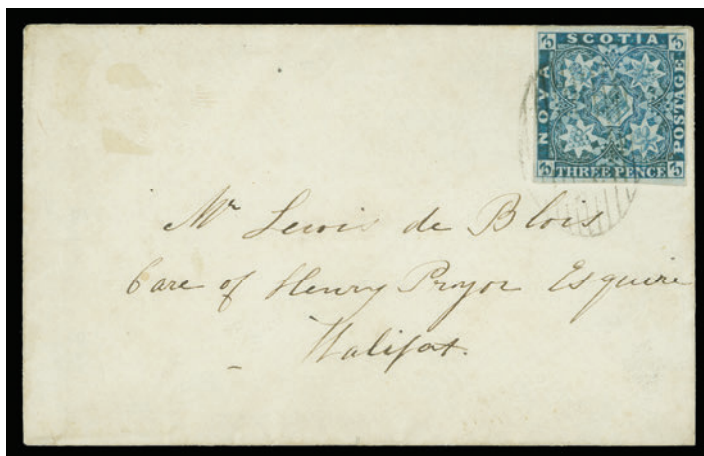 SCOTIA
NOVA
POSTAGE
3
3
THREE PENCE
3
3
Mr Lewis de Blois
Care of Henry Pryor Esquire
Halifax.